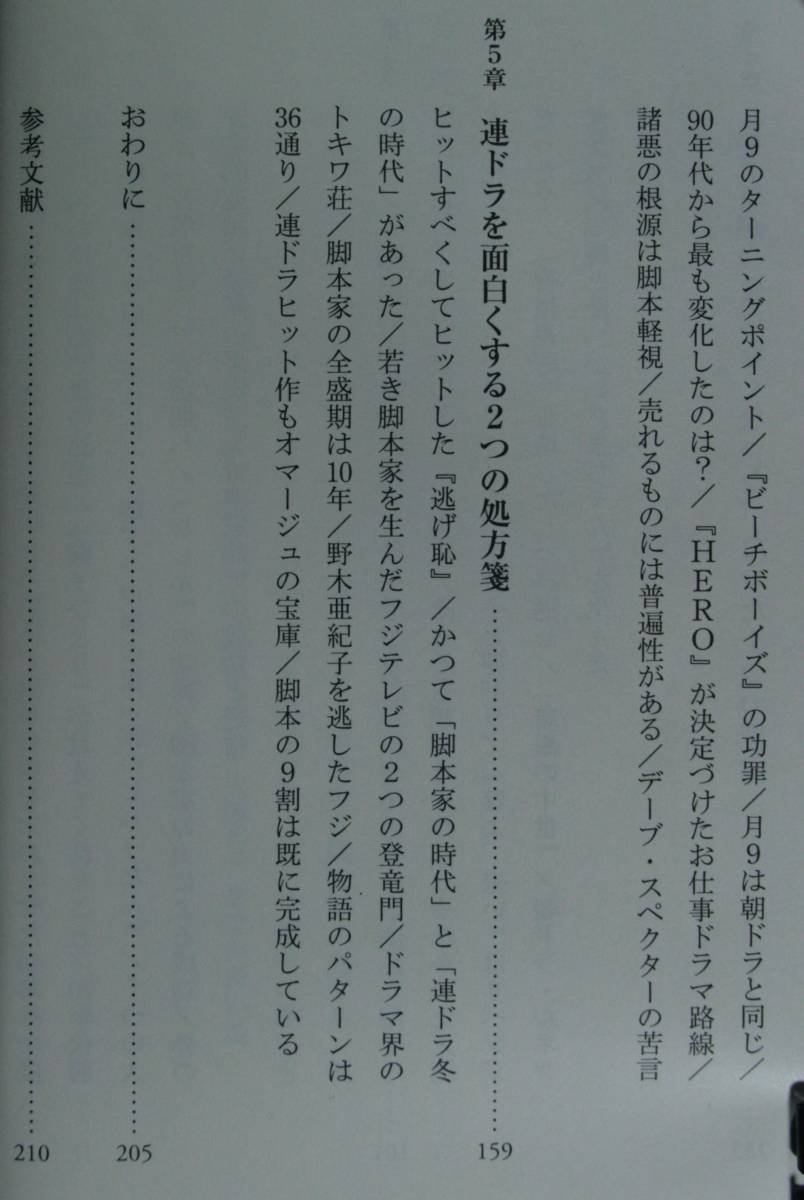 月9のターニングポイント/『ビーチボーイズ』の功罪/月9は朝ドラと同じ/
90年代から最も変化したのは?/『HERO』が決定づけたお仕事ドラマ路線/
諸悪の根源は脚本軽視/売れるものには普遍性がある/デーブ・スペクターの苦言
第5章 連ドラを面白くする2つの処方箋……………………………… 159
ヒットすべくしてヒットした『逃げ恥』/かつて「脚本家の時代」と「連ドラ冬
の時代」があった/若き脚本家を生んだフジテレビの2つの登竜門/ドラマ界の
トキワ荘/脚本家の全盛期は10年/野木亜紀子を逃したフジ/物語のパターンは
36通り/連ドラヒット作もオマージュの宝庫/脚本の9割は既に完成している
おわりに……………………………… 205
参考文献……………………………… 210